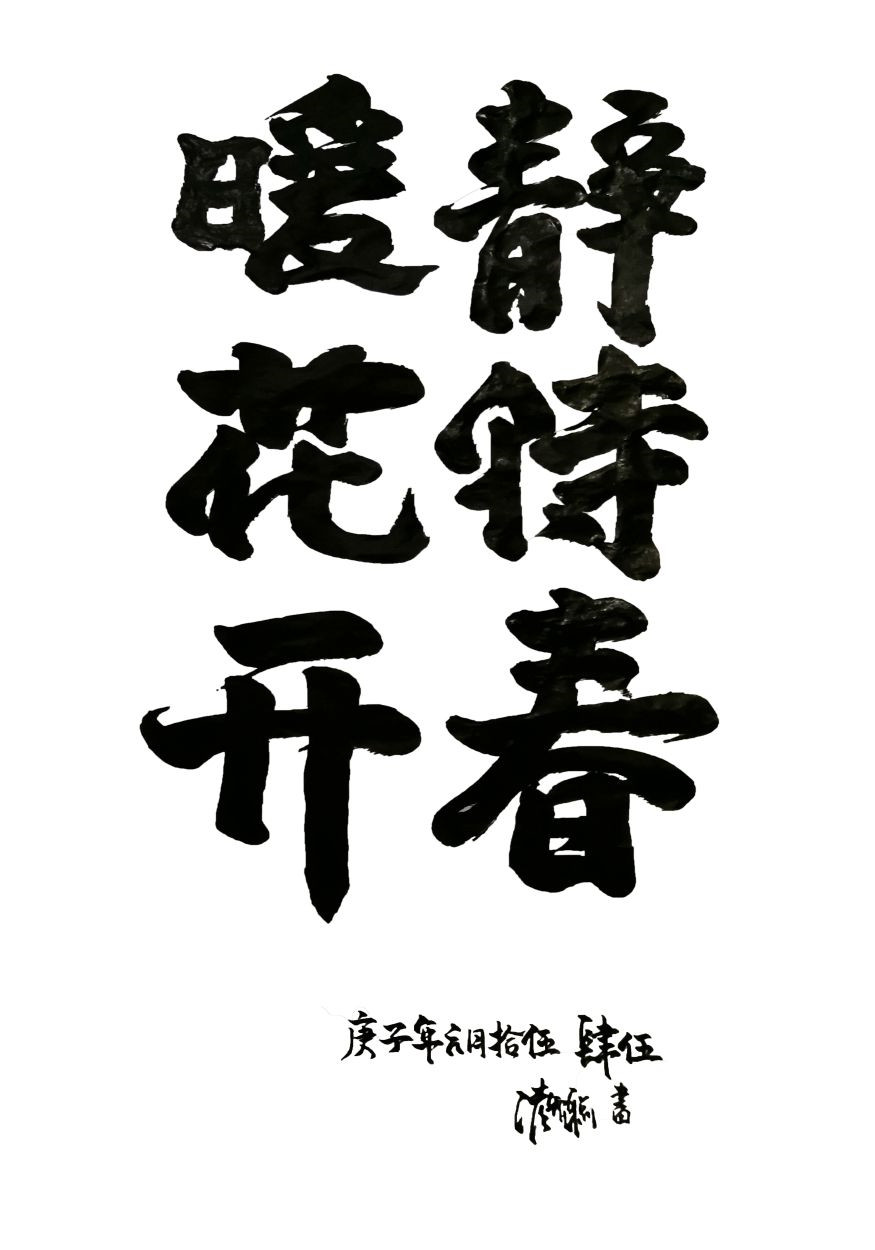 静待春
暖花开
庚子年元月拾伍 肆伍
書